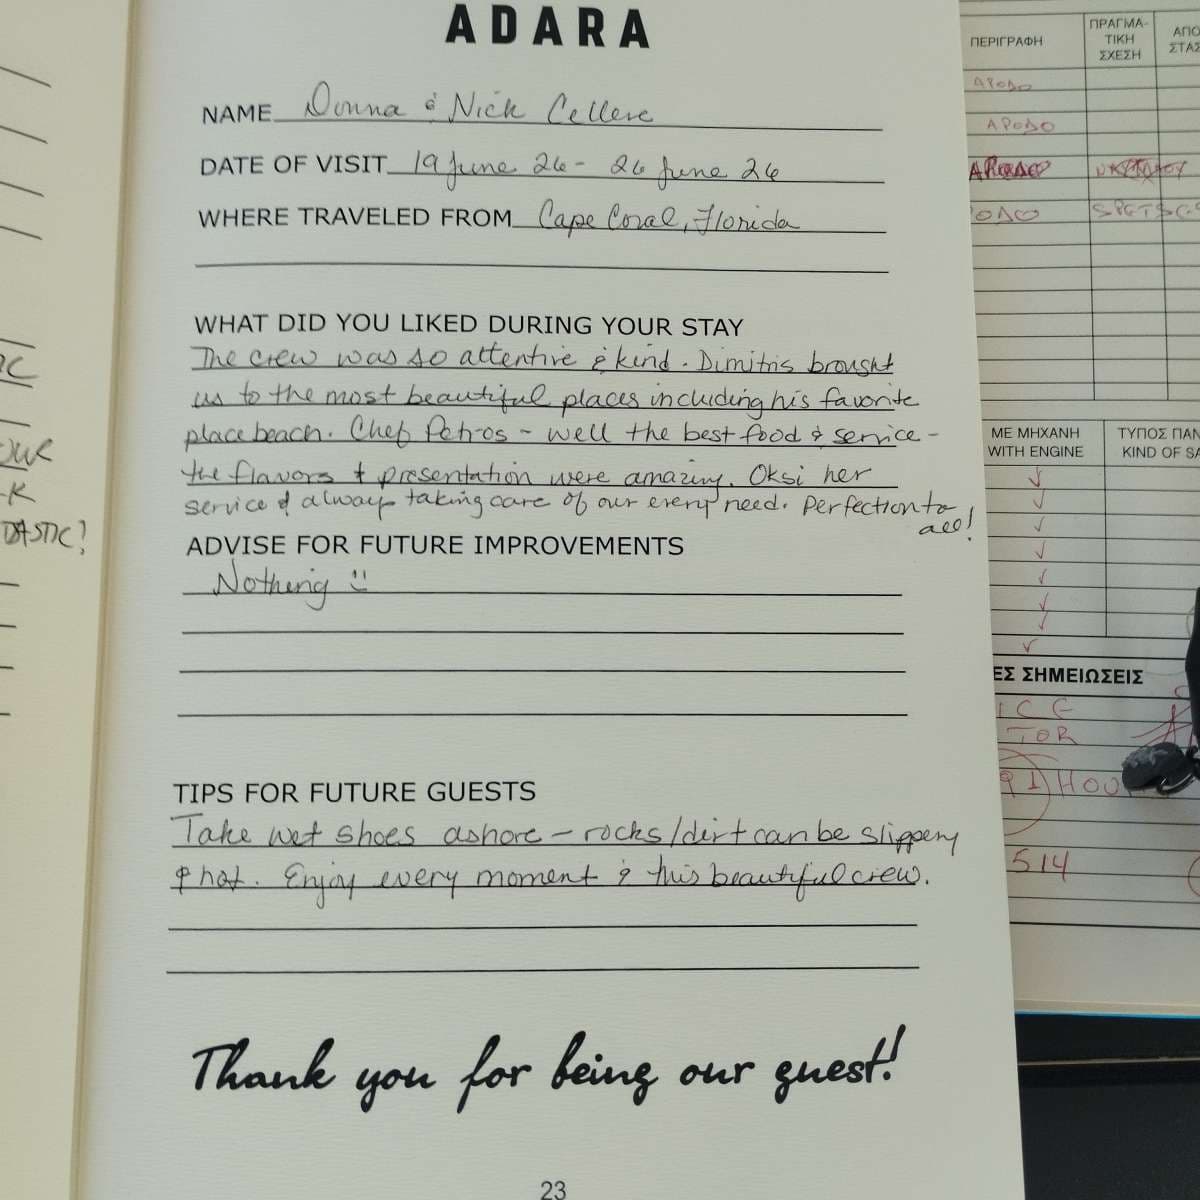 ADARA
NAME Donna & Nick Cellere
DATE OF VISIT 19 June 26 - 26 June 26
WHERE TRAVELED FROM Cape Coral, Florida
WHAT DID YOU LIKED DURING YOUR STAY
The crew was so attentive & kind. Dimitris brought
us to the most beautiful places including his favorite
place beach. Chef Petros - well the best food & service -
the flavors & presentation were amazing. Oksi her
service & always taking care of our every need. Perfection to
all!
ADVISE FOR FUTURE IMPROVEMENTS
Nothing :)
TIPS FOR FUTURE GUESTS
Take wet shoes ashore - rocks/dirt can be slippery
& hot. Enjoy every moment & this beautiful crew.
Thank you for being our guest!
23
ΠΕΡΙΓΡΑΦΗ
ΠΡΑΓΜΑ-
ΤΙΚΗ
ΣΧΕΣΗ
ΑΠΟ
ΣΤΑΣ
ΑΡΟΔΟ
ΑΡΟΔΟ
ΜΕ ΜΗΧΑΝΗ
WITH ENGINE
ΤΥΠΟΣ ΠΑΝ
KIND OF SA
ΕΣ ΣΗΜΕΙΩΣΕΙΣ
ICE
TOR
HOU
514